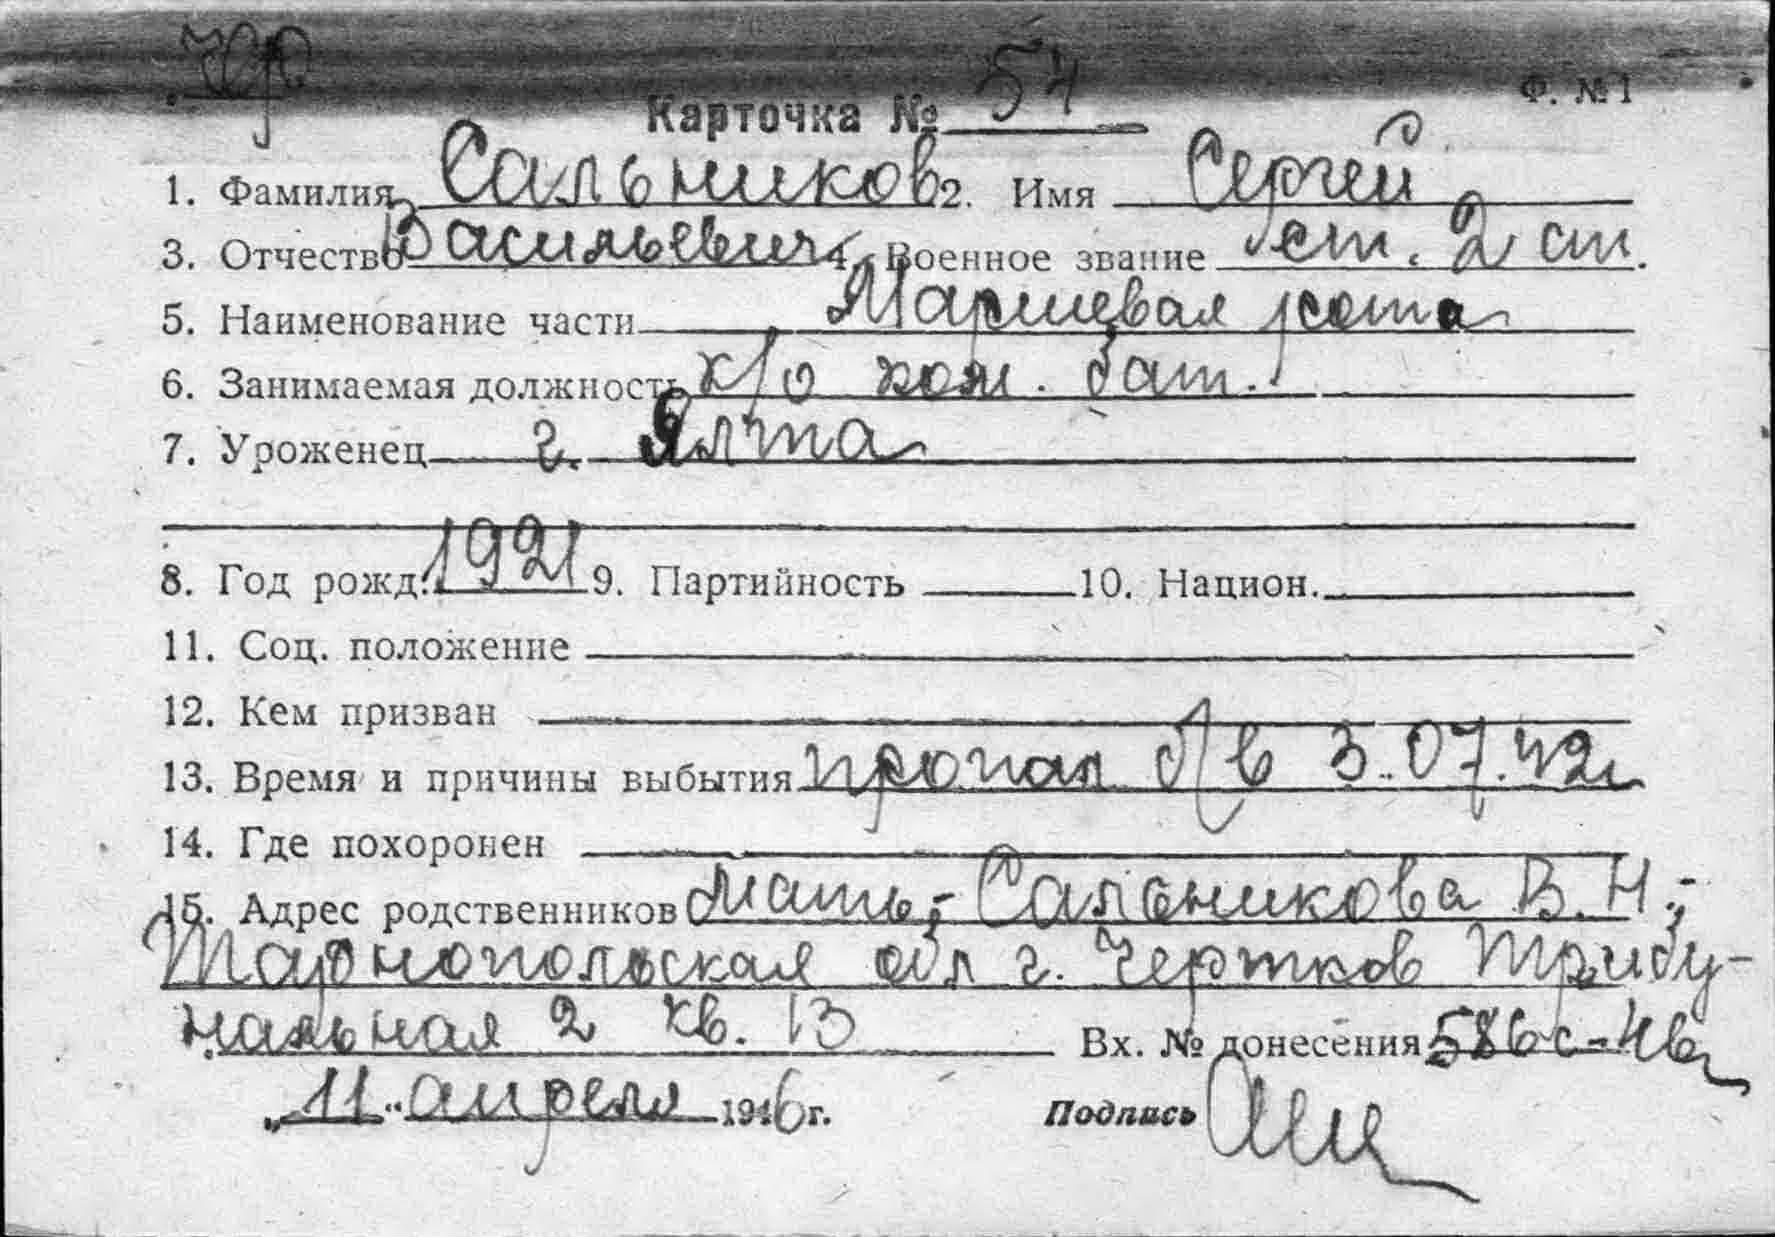 Ф. №1
Карточка № 54
1. Фамилия Сальников 2. Имя Сергей
3. Отчество Васильевич 4. Военное звание ст. 2 ст.
5. Наименование части Маршевая рота
6. Занимаемая должность х/о хоз. бат.
7. Уроженец г. Ялта
8. Год рожд. 1921 9. Партийность 10. Национ.
11. Соц. положение
12. Кем призван
13. Время и причины выбытия пропал б/в 3.07.42г
14. Где похоронен
15. Адрес родственников Мать,- Сальникова В.Н.;
Тарнопольская обл г. Чертков Трибу-
нальная 2 кв. 13 Вх. № донесения 586с-46г
„11“ апреля 1946 г. Подпись